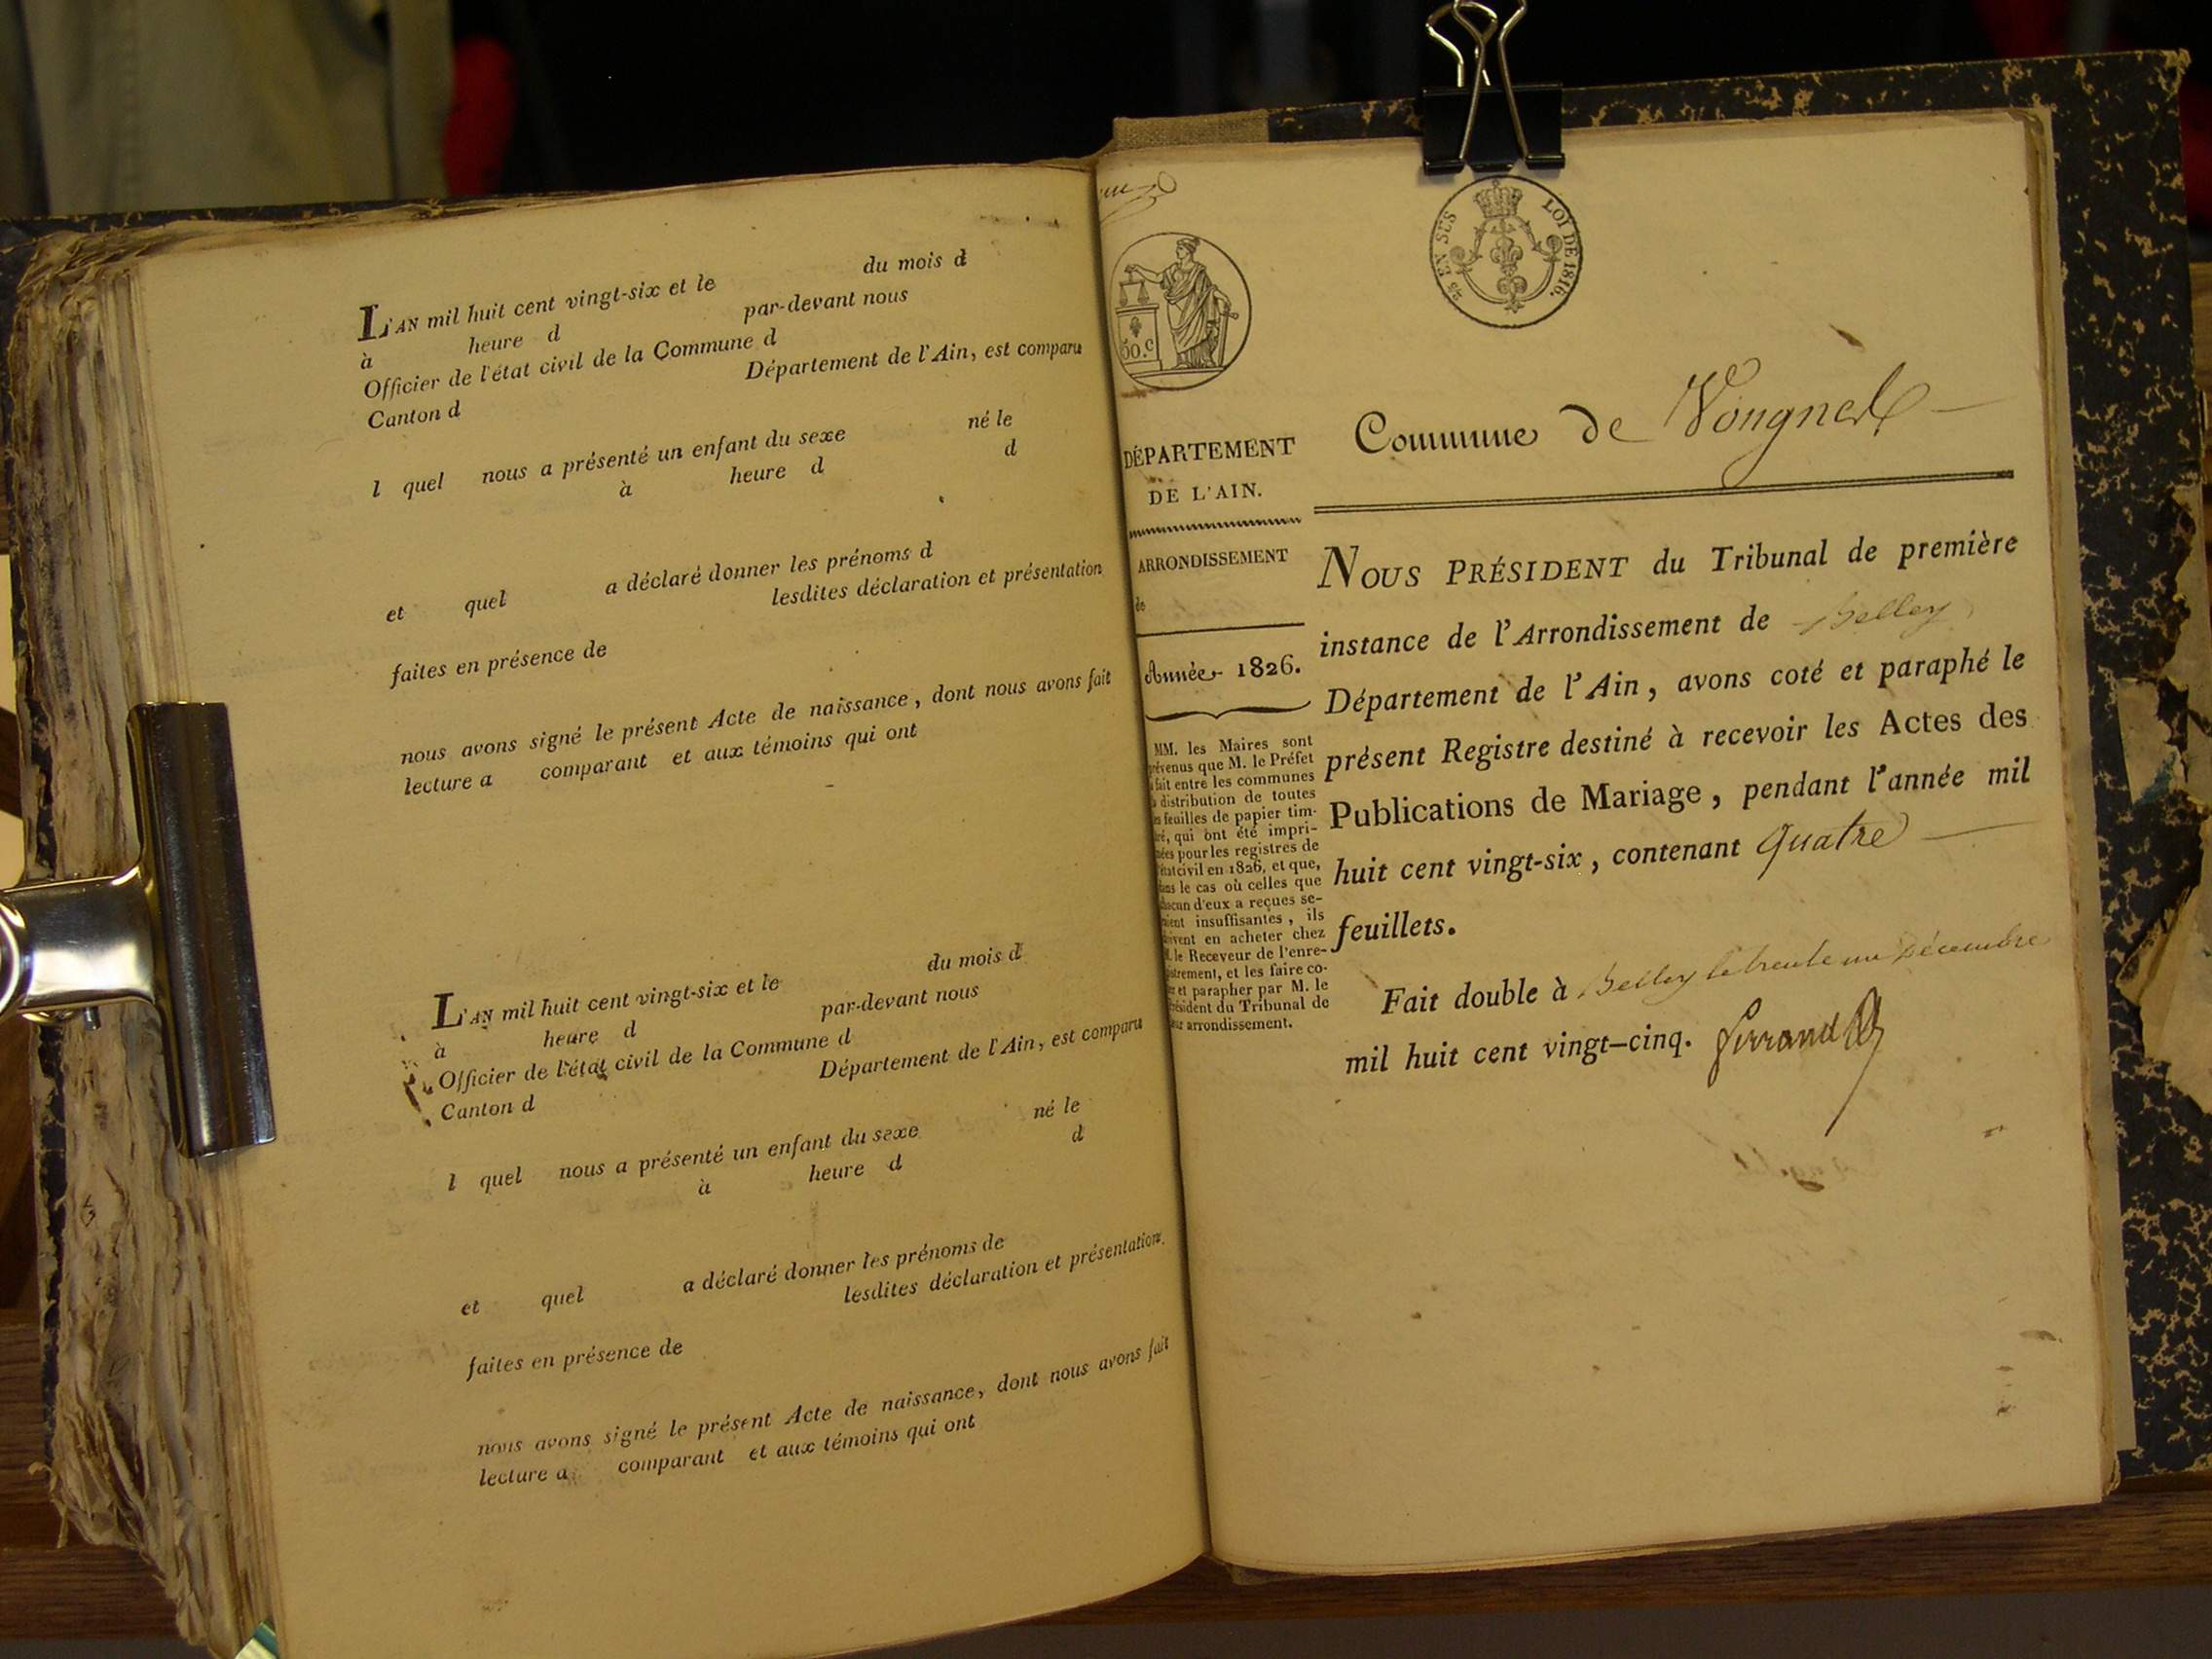 L'AN mil huit cent vingt-six et le du mois d
à heure d par-devant nous
Officier de l'état civil de la Commune d
Canton d Département de l'Ain, est comparu
l quel nous a présenté un enfant du sexe né le
à heure d d
et quel a déclaré donner les prénoms d
lesdites déclaration et présentation
faites en présence de
nous avons signé le présent Acte de naissance, dont nous avons fait
lecture a comparant et aux témoins qui ont
L'AN mil huit cent vingt-six et le du mois d
à heure d par-devant nous
Officier de l'état civil de la Commune d
Canton d Département de l'Ain, est comparu
l quel nous a présenté un enfant du sexe né le
à heure d d
et quel a déclaré donner les prénoms de
lesdites déclaration et présentation
faites en présence de
nous avons signé le présent Acte de naissance, dont nous avons fait
lecture a comparant et aux témoins qui ont
50.c
25 EN SUS LOI DE 1816.
DÉPARTEMENT
DE L'AIN.
ARRONDISSEMENT
de
Année 1826.
MM. les Maires sont
prévenus que M. le Préfet
fait entre les communes
distribution de toutes
feuilles de papier tim-
qui ont été impri-
pour les registres de
état civil en 1826, et que,
le cas où celles que
chacun d'eux a reçues se-
insuffisantes, ils
doivent en acheter chez
M. le Receveur de l'enre-
gistrement, et les faire co-
et parapher par M. le
Président du Tribunal de
arrondissement.
Commune de Vongnes
NOUS PRÉSIDENT du Tribunal de première
instance de l'Arrondissement de Belley
Département de l'Ain, avons coté et paraphé le
présent Registre destiné à recevoir les Actes des
Publications de Mariage, pendant l'année mil
huit cent vingt-six, contenant quatre
feuillets.
Fait double à Belley le trente un décembre
mil huit cent vingt-cinq. Ferrand